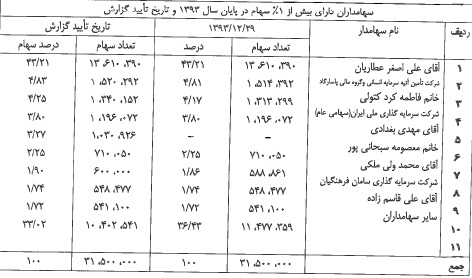 سهامداران دارای بیش از ۱٪ سهام در پایان سال ۱۳۹۳ و تاریخ تأیید گزارش
ردیف نام سهامدار ۱۳۹۳/۱۲/۲۹ تاریخ تأیید گزارش
تعداد سهام درصد تعداد سهام درصد سهام
۱ آقای علی اصغر عطاریان ۱۳,۶۱۰,۳۹۰ ۴۳/۲۱ ۱۳,۶۱۰,۳۹۰ ۴۳/۲۱
۲ شرکت تأمین آتیه سرمایه انسانی وگروه مالی پاسارگاد ۱,۵۱۴,۳۹۲ ۴/۸۱ ۱,۵۲۰,۲۹۲ ۴/۸۳
۳ خانم فاطمه کرد کتولی ۱,۳۱۳,۲۹۹ ۴/۱۷ ۱,۳۴۰,۱۵۲ ۴/۲۵
۴ شرکت سرمایه گذاری ملی ایران(سهامی عام) ۱,۱۹۶,۰۷۲ ۳/۸۰ ۱,۱۹۶,۰۷۲ ۳/۸۰
۵ آقای مهدی بغدادی - - ۱,۰۳۰,۹۲۶ ۳/۲۷
۶ خانم معصومه سبحانی پور ۷۱۰,۰۵۰ ۲/۲۵ ۷۱۰,۰۵۰ ۲/۲۵
۷ آقای محمد ولی ملکی ۵۸۸,۸۶۱ ۱/۸۶ ۶۰۰,۰۰۰ ۱/۹۰
۸ شرکت سرمایه گذاری سامان فرهنگیان ۵۴۸,۴۷۷ ۱/۷۴ ۵۴۸,۴۷۷ ۱/۷۴
۹ آقای علی قاسم زاده ۵۴۱,۱۰۰ ۱/۷۲ ۵۴۱,۱۰۰ ۱/۷۲
۱۰ سایر سهامداران ۱۱,۴۷۷,۳۵۹ ۳۶/۴۳ ۱۰,۴۰۲,۵۴۱ ۳۳/۰۲
۱۱
جمع ۳۱,۵۰۰,۰۰۰ ۱۰۰ ۳۱,۵۰۰,۰۰۰ ۱۰۰